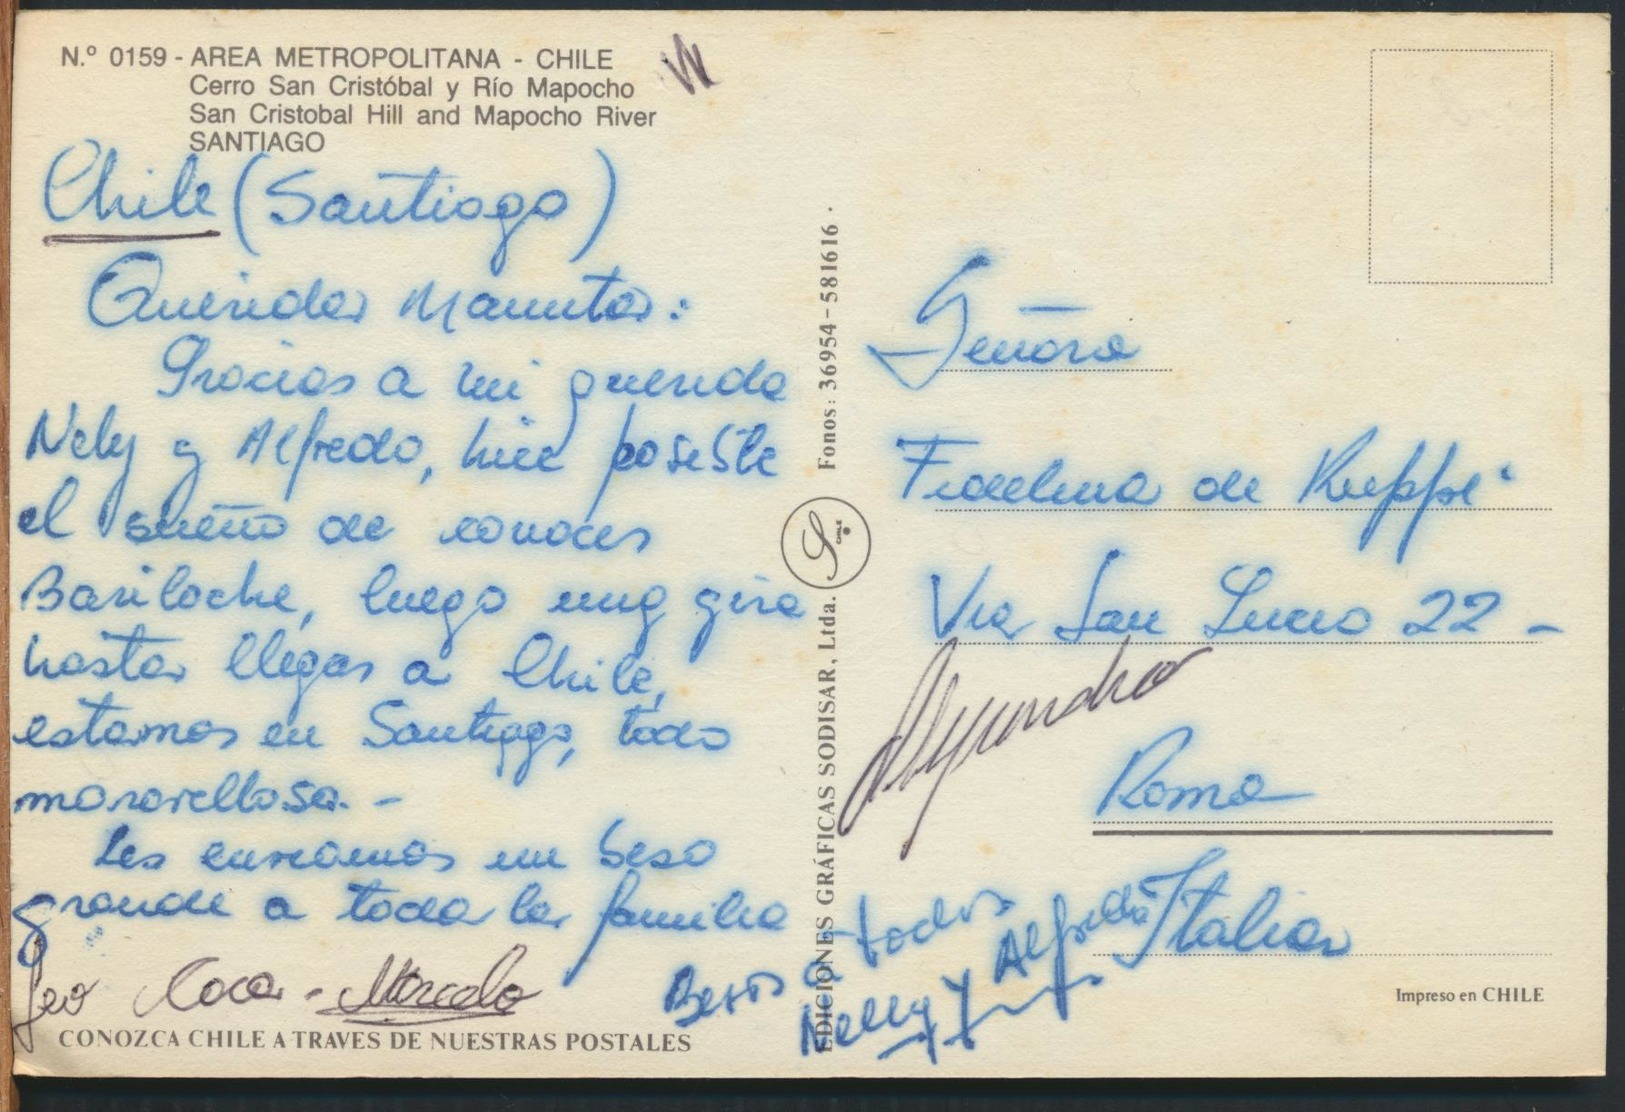 N.º 0159 - AREA METROPOLITANA - CHILE
Cerro San Cristóbal y Río Mapocho
San Cristobal Hill and Mapocho River
SANTIAGO
Chile (Santiago)
Querida Mamita:
Gracias a mi querida
Nely y Alfredo, hice posible
el sueño de conocer
Bariloche, luego una gira
hasta llegar a Chile,
estamos en Santiago, todo
maravilloso. -
Les enviamos un beso
grande a toda la familia
Coca - Marcelo
CONOZCA CHILE A TRAVES DE NUESTRAS POSTALES
EDICIONES GRÁFICAS SODISAR, Ltda. Fonos: 36954-581616.
S CHILE
Señora
Fidelina de Ruppi
Via San Lucio 22 -
Alejandro
Roma
Italia
Besos a todos
Nelly y Alfredo
Impreso en CHILE